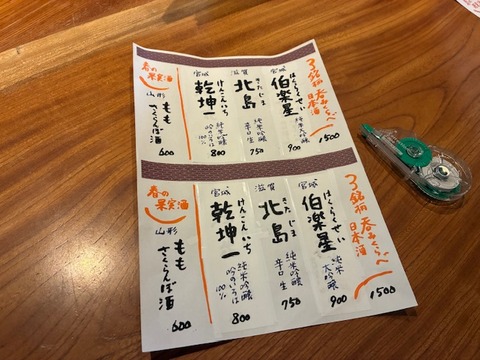 3銘柄呑みくらべ
日本酒
1500
宮城
はくらくせい
伯楽星
純米大吟醸
900
滋賀
きたじま
北島
純米吟醸
辛口 生
750
宮城
けんこんいち
乾坤一
純米吟醸
吟のいろは
100%
800
春の
果実酒
山形
もも
さくらんぼ酒
600
3銘柄呑みくらべ
日本酒
1500
宮城
はくらくせい
伯楽星
純米
大吟醸
900
滋賀
きたじま
北島
純米吟醸
辛口 生
750
宮城
けんこんいち
乾坤一
純米吟醸
吟のいろは
100%
800
春の
果実酒
山形
もも
さくらんぼ酒
600